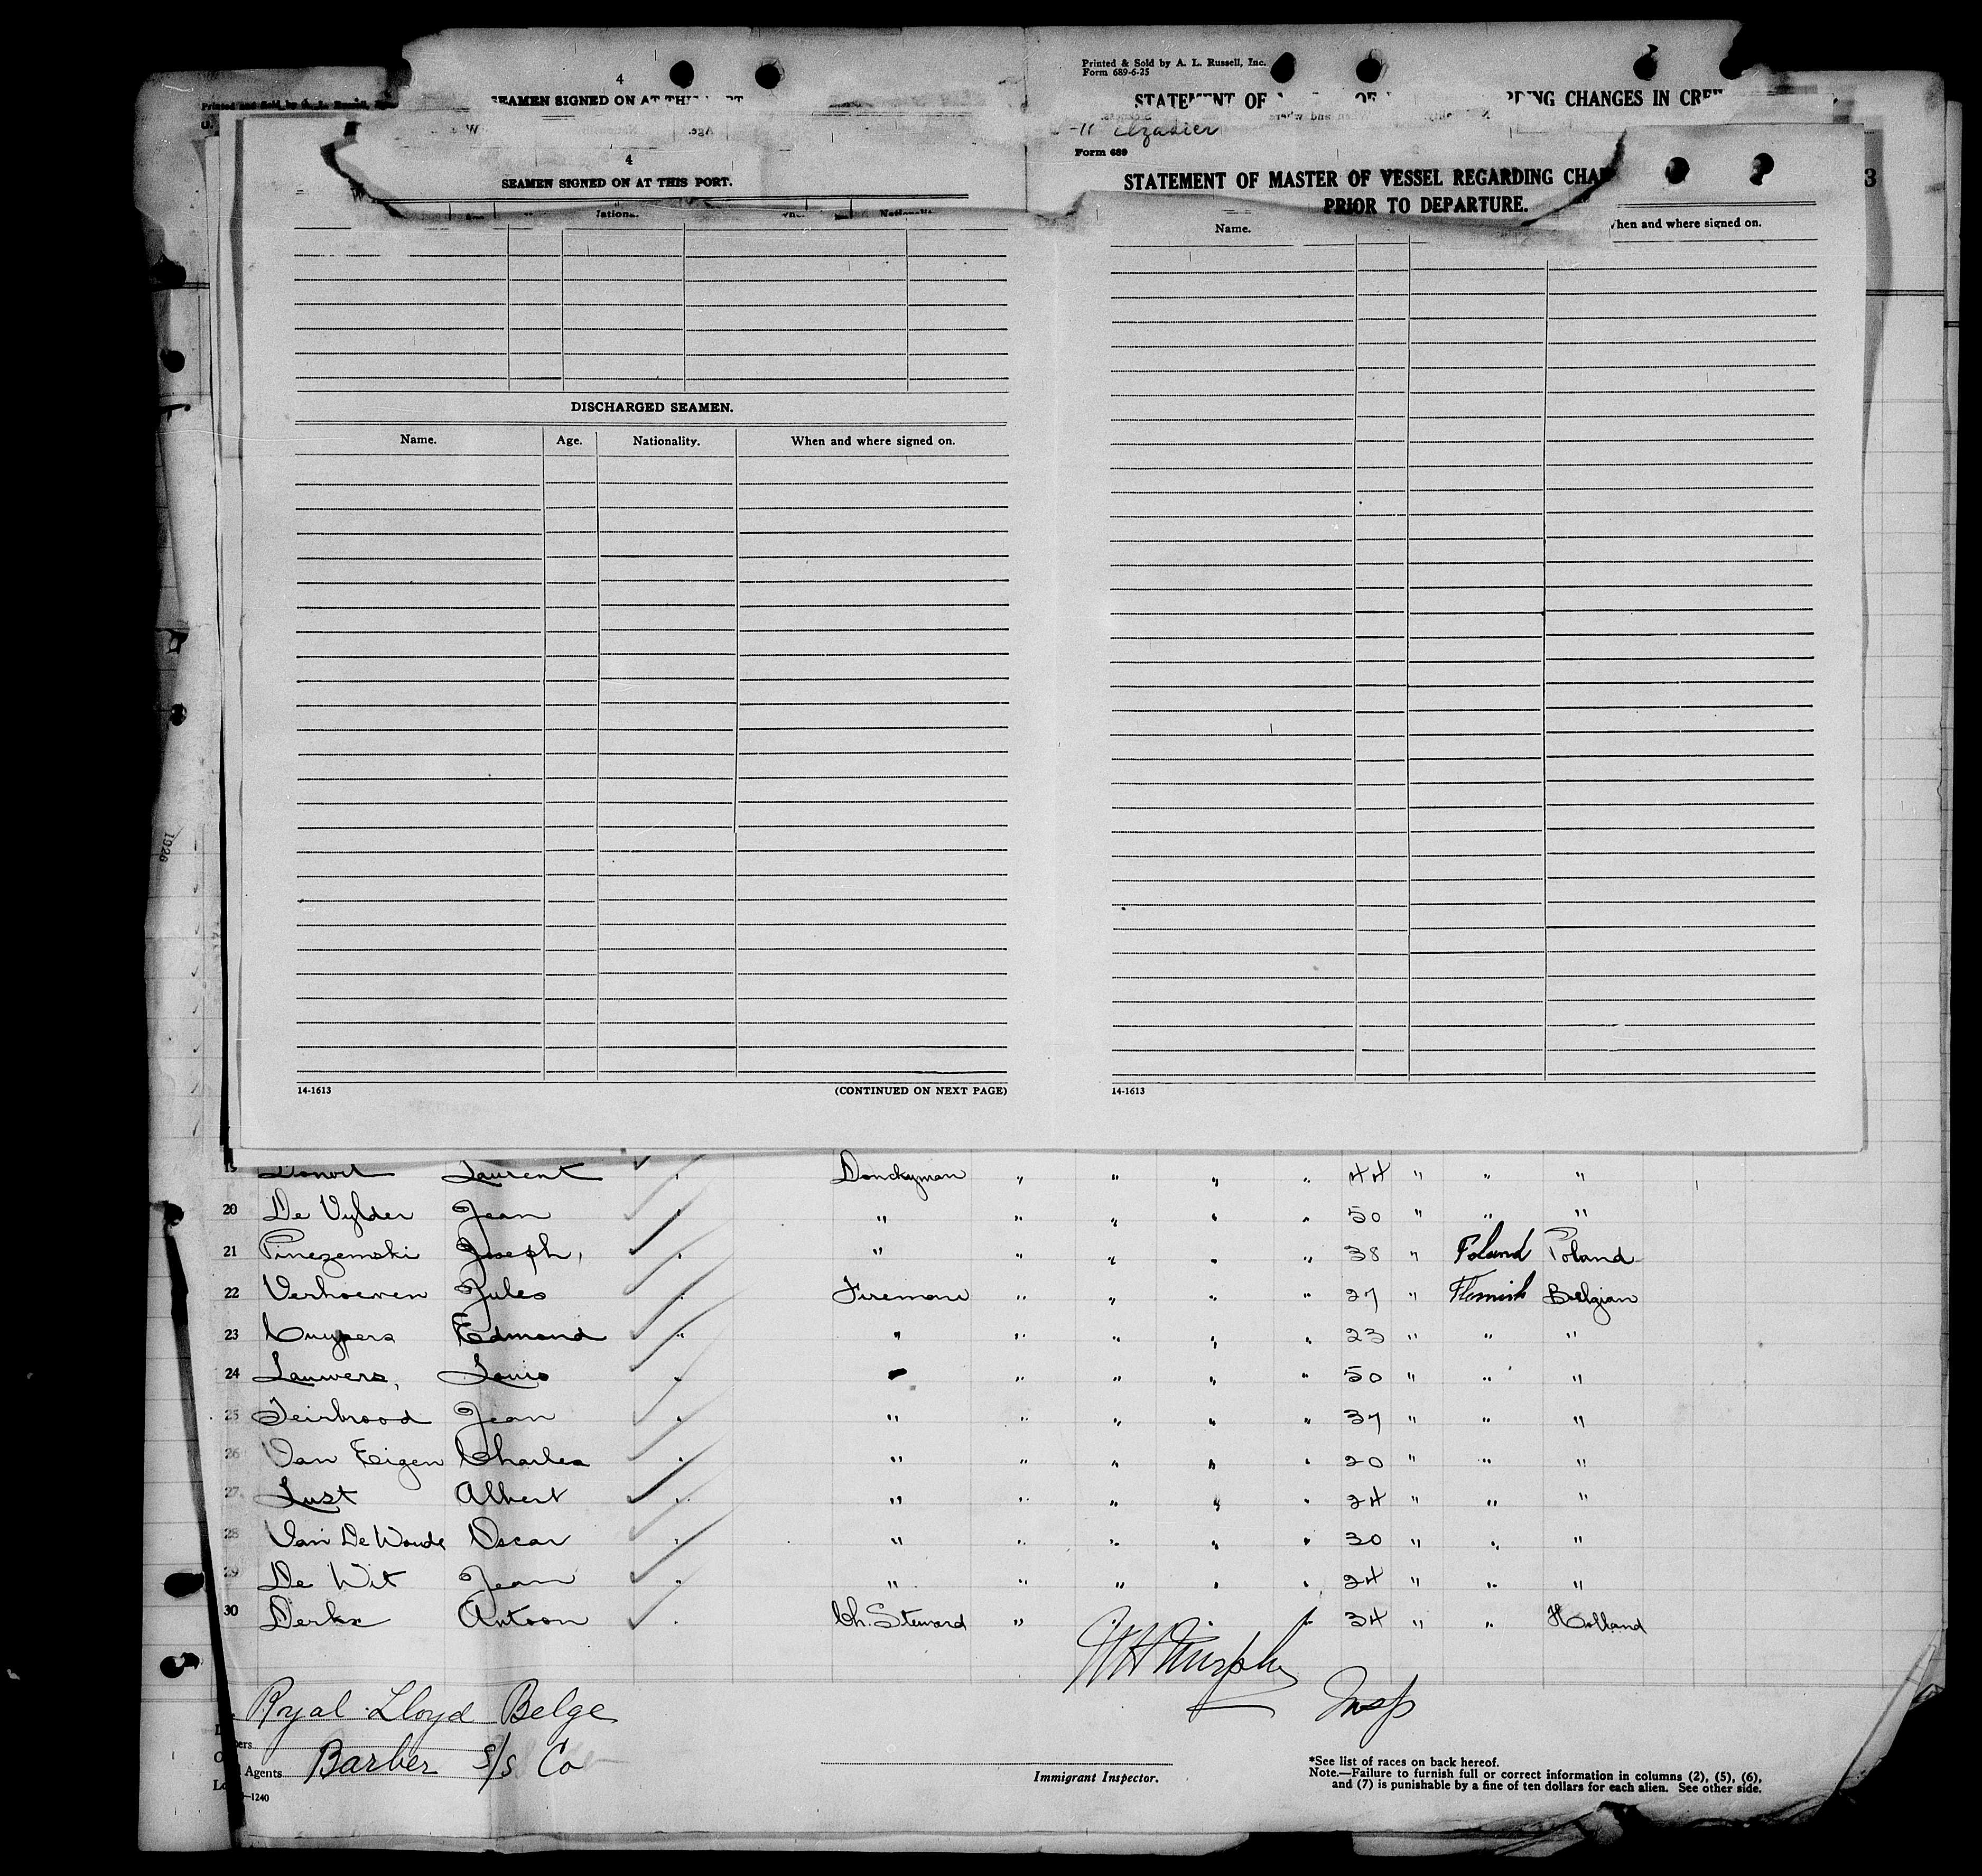 4
Printed & Sold by A. L. Russell, Inc.
Form 689-6-25
SEAMEN SIGNED ON AT
STATEMENT OF CHANGES IN
Form 689
4
SEAMEN SIGNED ON AT THIS PORT.
STATEMENT OF MASTER OF VESSEL REGARDING
PRIOR TO DEPARTURE.
3
Name. when and where signed on.
DISCHARGED SEAMEN.
Name. Age. Nationality. When and where signed on.
1926
14-1613 (CONTINUED ON NEXT PAGE) 14-1613
19 Laurent " Donckyman " " " " 44 " " "
20 De Vylder Jean " " " " " " 50 " " "
21 Pinezemski Joseph, " " " " " " 38 " Poland Poland
22 Verhoeven Jules " Firemane " " " " 27 " Flemish Belgian
23 Cuypers Edmond " " " " " " 23 " " "
24 Lauwers, Louis " " " " " " 50 " " "
25 Teirbrood Jean " " " " " " 37 " " "
26 Van Eigen Charles " " " " " " 20 " " "
27 Lust Albert " " " " " " 24 " " "
28 Van De Woude Oscar " " " " " " 30 " " "
29 De Wit Jean " " " " " " 24 " " "
30 Derks Antoon " Ch. Steward " " 34 " " Holland
W H Murphy Insp
Royal Lloyd Belge
Agents Barber S/S Co
Immigrant Inspector.
*See list of races on back hereof.
Note.—Failure to furnish full or correct information in columns (2), (5), (6),
and (7) is punishable by a fine of ten dollars for each alien. See other side.
—1240